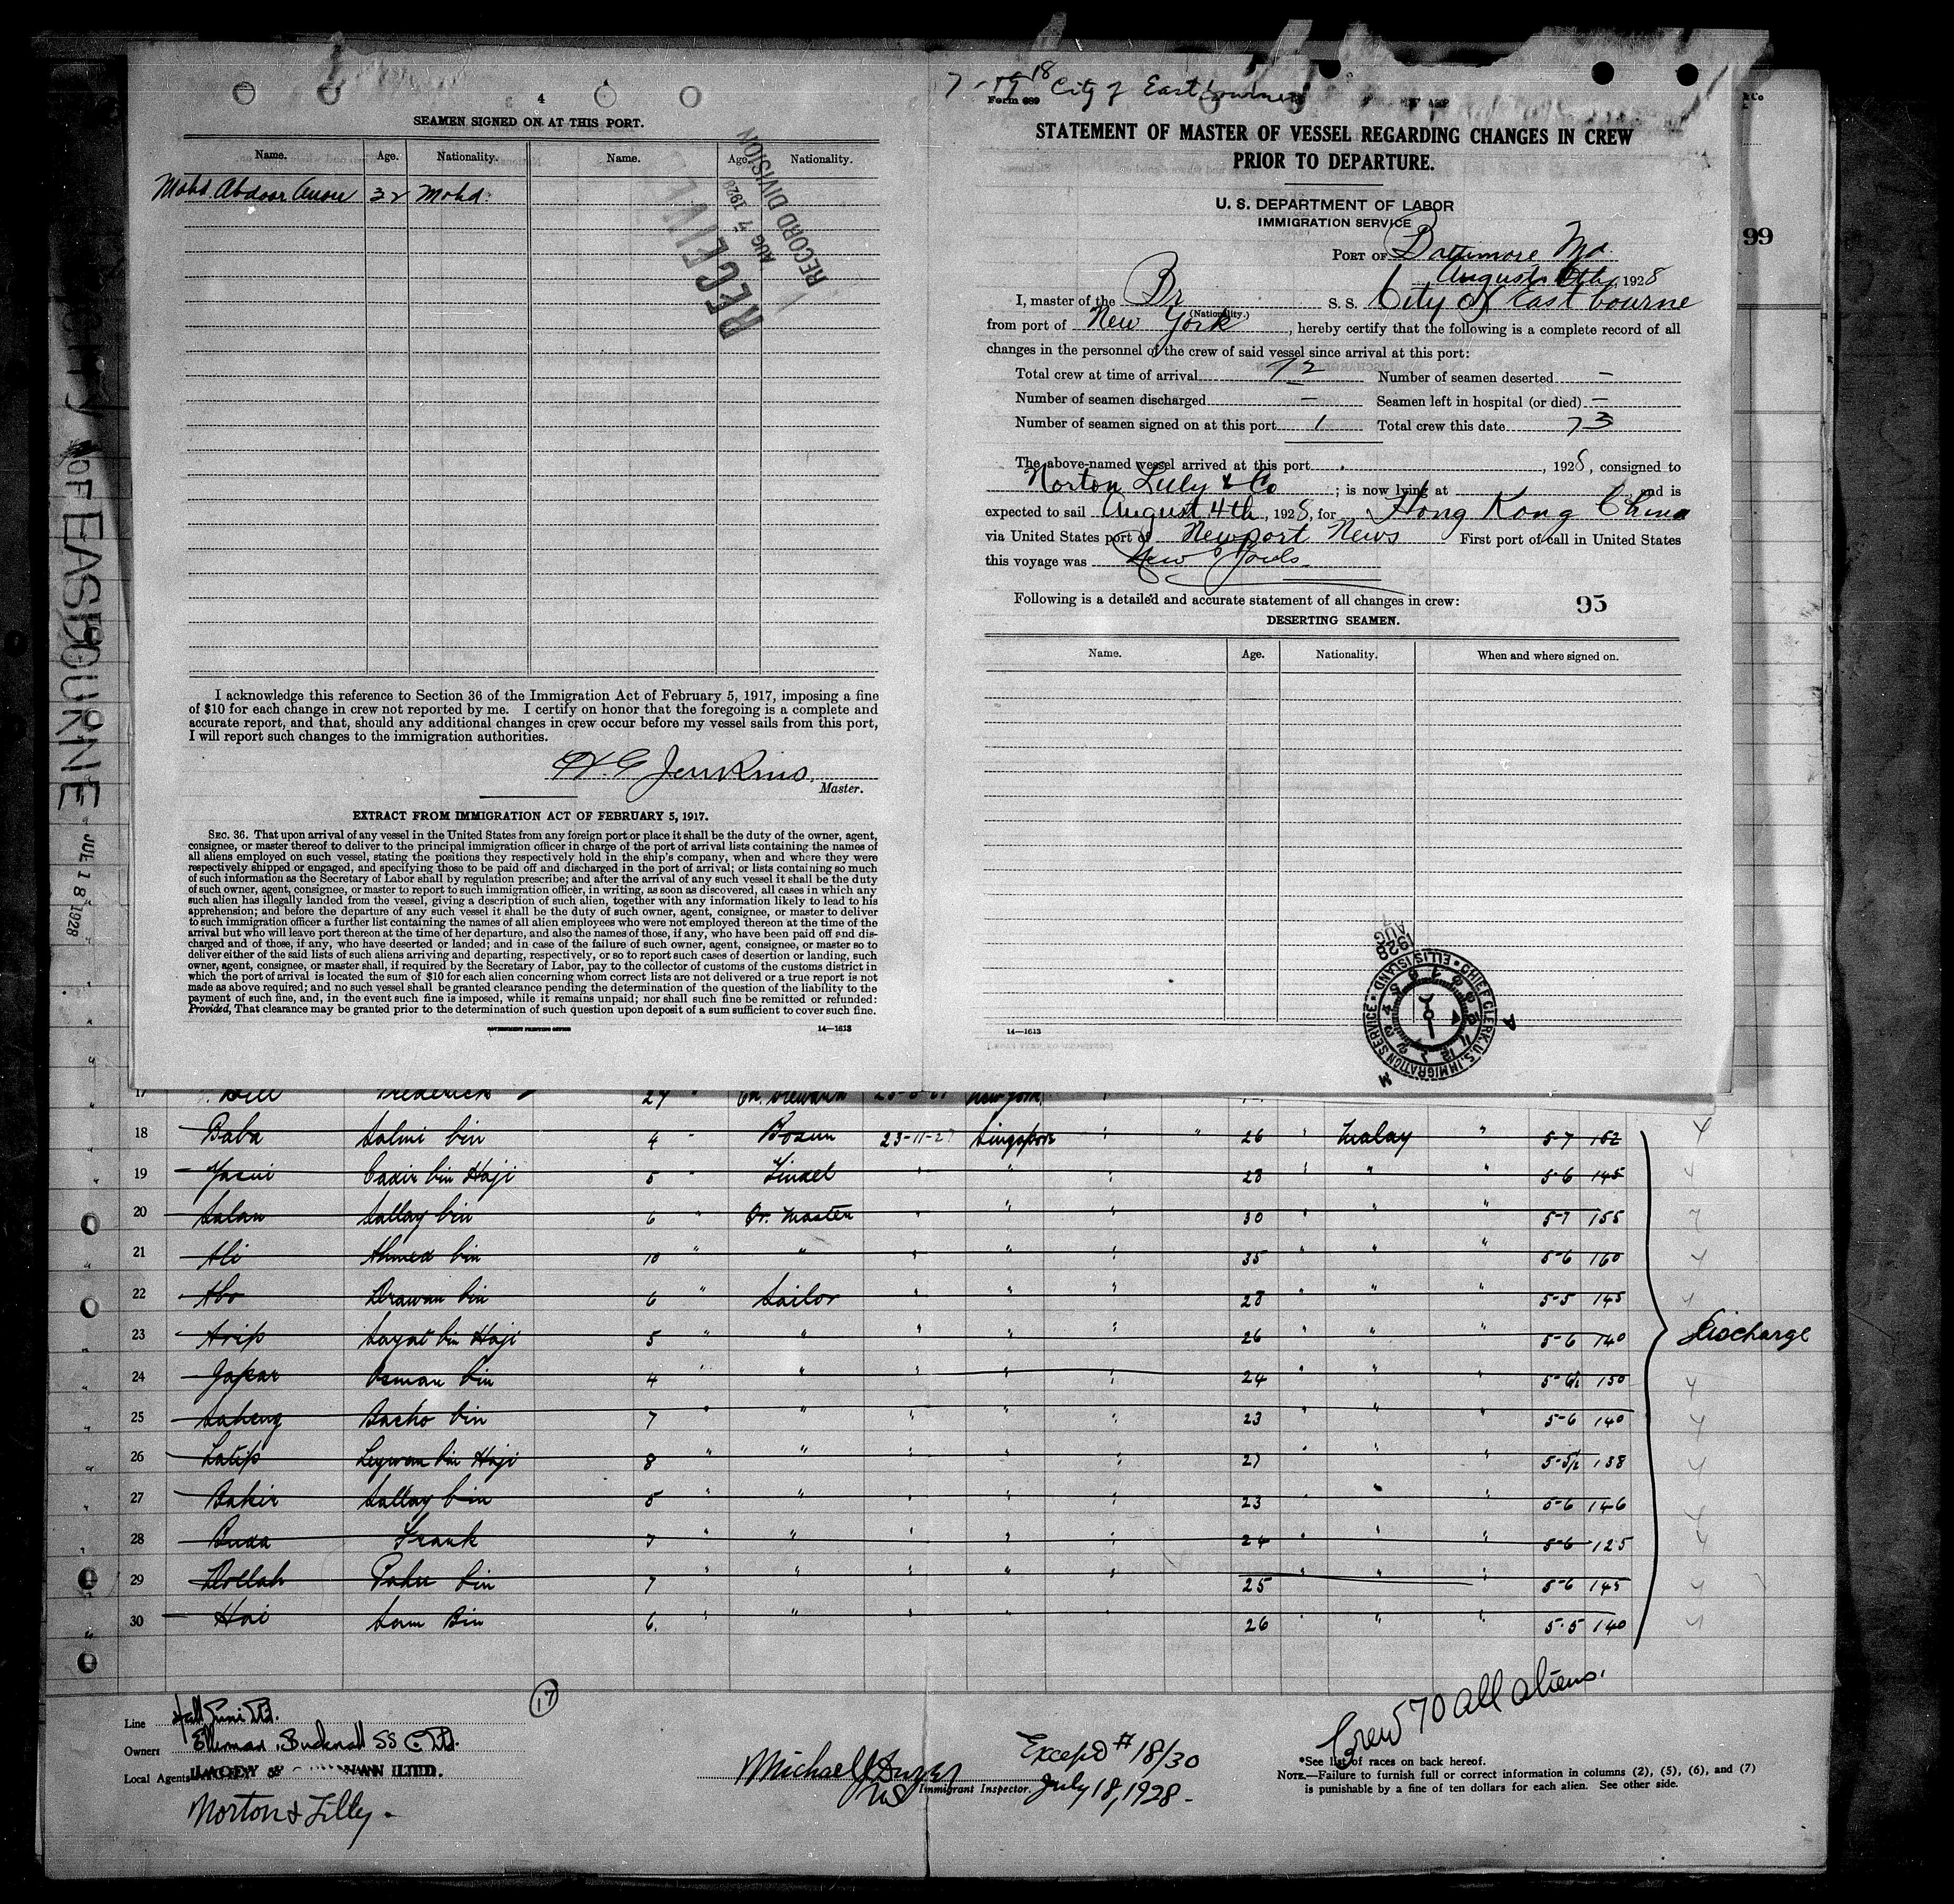 4
SEAMEN SIGNED ON AT THIS PORT.
Name. Age. Nationality. Name. Age. Nationality.
Mohd. Abdoor 32 Mohd.
RECEIVED
AUG 7 1928
RECORD DIVISION
I acknowledge this reference to Section 36 of the Immigration Act of February 5, 1917, imposing a fine
of $10 for each change in crew not reported by me. I certify on honor that the foregoing is a complete and
accurate report, and that, should any additional changes in crew occur before my vessel sails from this port,
I will report such changes to the immigration authorities.
Jenkins
Master.
EXTRACT FROM IMMIGRATION ACT OF FEBRUARY 5, 1917.
SEC. 36. That upon arrival of any vessel in the United States from any foreign port or place it shall be the duty of the owner, agent,
consignee, or master thereof to deliver to the principal immigration officer in charge of the port of arrival lists containing the names of
all aliens employed on such vessel, stating the positions they respectively hold in the ship's company, when and where they were
respectively shipped or engaged, and specifying those to be paid off and discharged in the port of arrival; or lists containing so much
of such information as the Secretary of Labor shall by regulation prescribe; and after the arrival of any such vessel it shall be the duty
of such owner, agent, consignee, or master to report to such immigration officer, in writing, as soon as discovered, all cases in which any
such alien has illegally landed from the vessel, giving a description of such alien, together with any information likely to lead to his
apprehension; and before the departure of any such vessel it shall be the duty of such owner, agent, consignee, or master to deliver
to such immigration officer a further list containing the names of all alien employees who were not employed thereon at the time of the
arrival but who will leave port thereon at the time of her departure, and also the names of those, if any, who have been paid off and dis-
charged and of those, if any, who have deserted or landed; and in case of the failure of such owner, agent, consignee, or master so to
deliver either of the said lists of such aliens arriving and departing, respectively, or so to report such cases of desertion or landing, such
owner, agent, consignee, or master shall, if required by the Secretary of Labor, pay to the collector of customs of the customs district in
which the port of arrival is located the sum of $10 for each alien concerning whom correct lists are not delivered or a true report is not
made as above required; and no such vessel shall be granted clearance pending the determination of the question of the liability to the
payment of such fine, and, in the event such fine is imposed, while it remains unpaid; nor shall such fine be remitted or refunded:
Provided, That clearance may be granted prior to the determination of such question upon deposit of a sum sufficient to cover such fine.
GOVERNMENT PRINTING OFFICE 14—1613
7 - 18 City of Eastbourne
Form 689
STATEMENT OF MASTER OF VESSEL REGARDING CHANGES IN CREW
PRIOR TO DEPARTURE.
U. S. DEPARTMENT OF LABOR
IMMIGRATION SERVICE
PORT OF Baltimore Md
August 4th, 1928
I, master of the Br S. S. City of Eastbourne
(Nationality.)
from port of New York, hereby certify that the following is a complete record of all
changes in the personnel of the crew of said vessel since arrival at this port:
Total crew at time of arrival 72 Number of seamen deserted —
Number of seamen discharged — Seamen left in hospital (or died) —
Number of seamen signed on at this port 1 Total crew this date 73
The above-named vessel arrived at this port , 1928, consigned to
Norton Lilly & Co ; is now lying at and is
expected to sail August 4th, 1928, for Hong Kong China
via United States port of Newport News First port of call in United States
this voyage was New York
Following is a detailed and accurate statement of all changes in crew: 95
DESERTING SEAMEN.
Name. Age. Nationality. When and where signed on.
14—1613
AUG 1928
CHIEF CLERK, U.S. IMMIGRATION SERVICE • ELLIS ISLAND •
99
OF EASTBOURNE
JUL 18 1928
17 Frederick 24 " New York
18 Baba Salmi bin 4 " Bosun 23-11-27 Singapore " " 26 " Malay " 5-7 162
19 Yasui Cadir bin Haji 5 " " " " 28 " " " 5-6 145
20 Salan Sallay bin 6 " Qr. Master " " " 30 " " " 5-7 155
21 Ali Ahmed bin 10 " " " " " 35 " " " 5-6 160
22 Abo Drawan bin 6 " Sailor " " " 28 " " " 5-5 145
23 Arip Sayat bin Haji 5 " " " " " 26 " " " 5-6 140
24 Japar Osman bin 4 " " " " " 24 " " " 150
25 Saheng Bacho bin 7 " " " " " 23 " " " 5-6 140
26 Latip bin Haji 8 " " " " " 27 " " " 5-5½ 138
27 Bakir Sallay bin 5 " " " " " 23 " " " 5-6 146
28 Buda Frank 7 " " " " " 24 " " " 5-6 125
29 Dollah bin 7 " " " " " 25 " " " 5-6 145
30 Hai Sam Bin 6. " " " " " 26 " " " 5-5 140
Discharge
17
Line
Owners Ellerman & Bucknall SS Co Ltd.
Local Agents
Norton & Lilly
Michael J.
Immigrant Inspector.
Except # 18/30
July 18, 1928
Crew 70 all aliens
*See list of races on back hereof.
NOTE.—Failure to furnish full or correct information in columns (2), (5), (6), and (7)
is punishable by a fine of ten dollars for each alien. See other side.